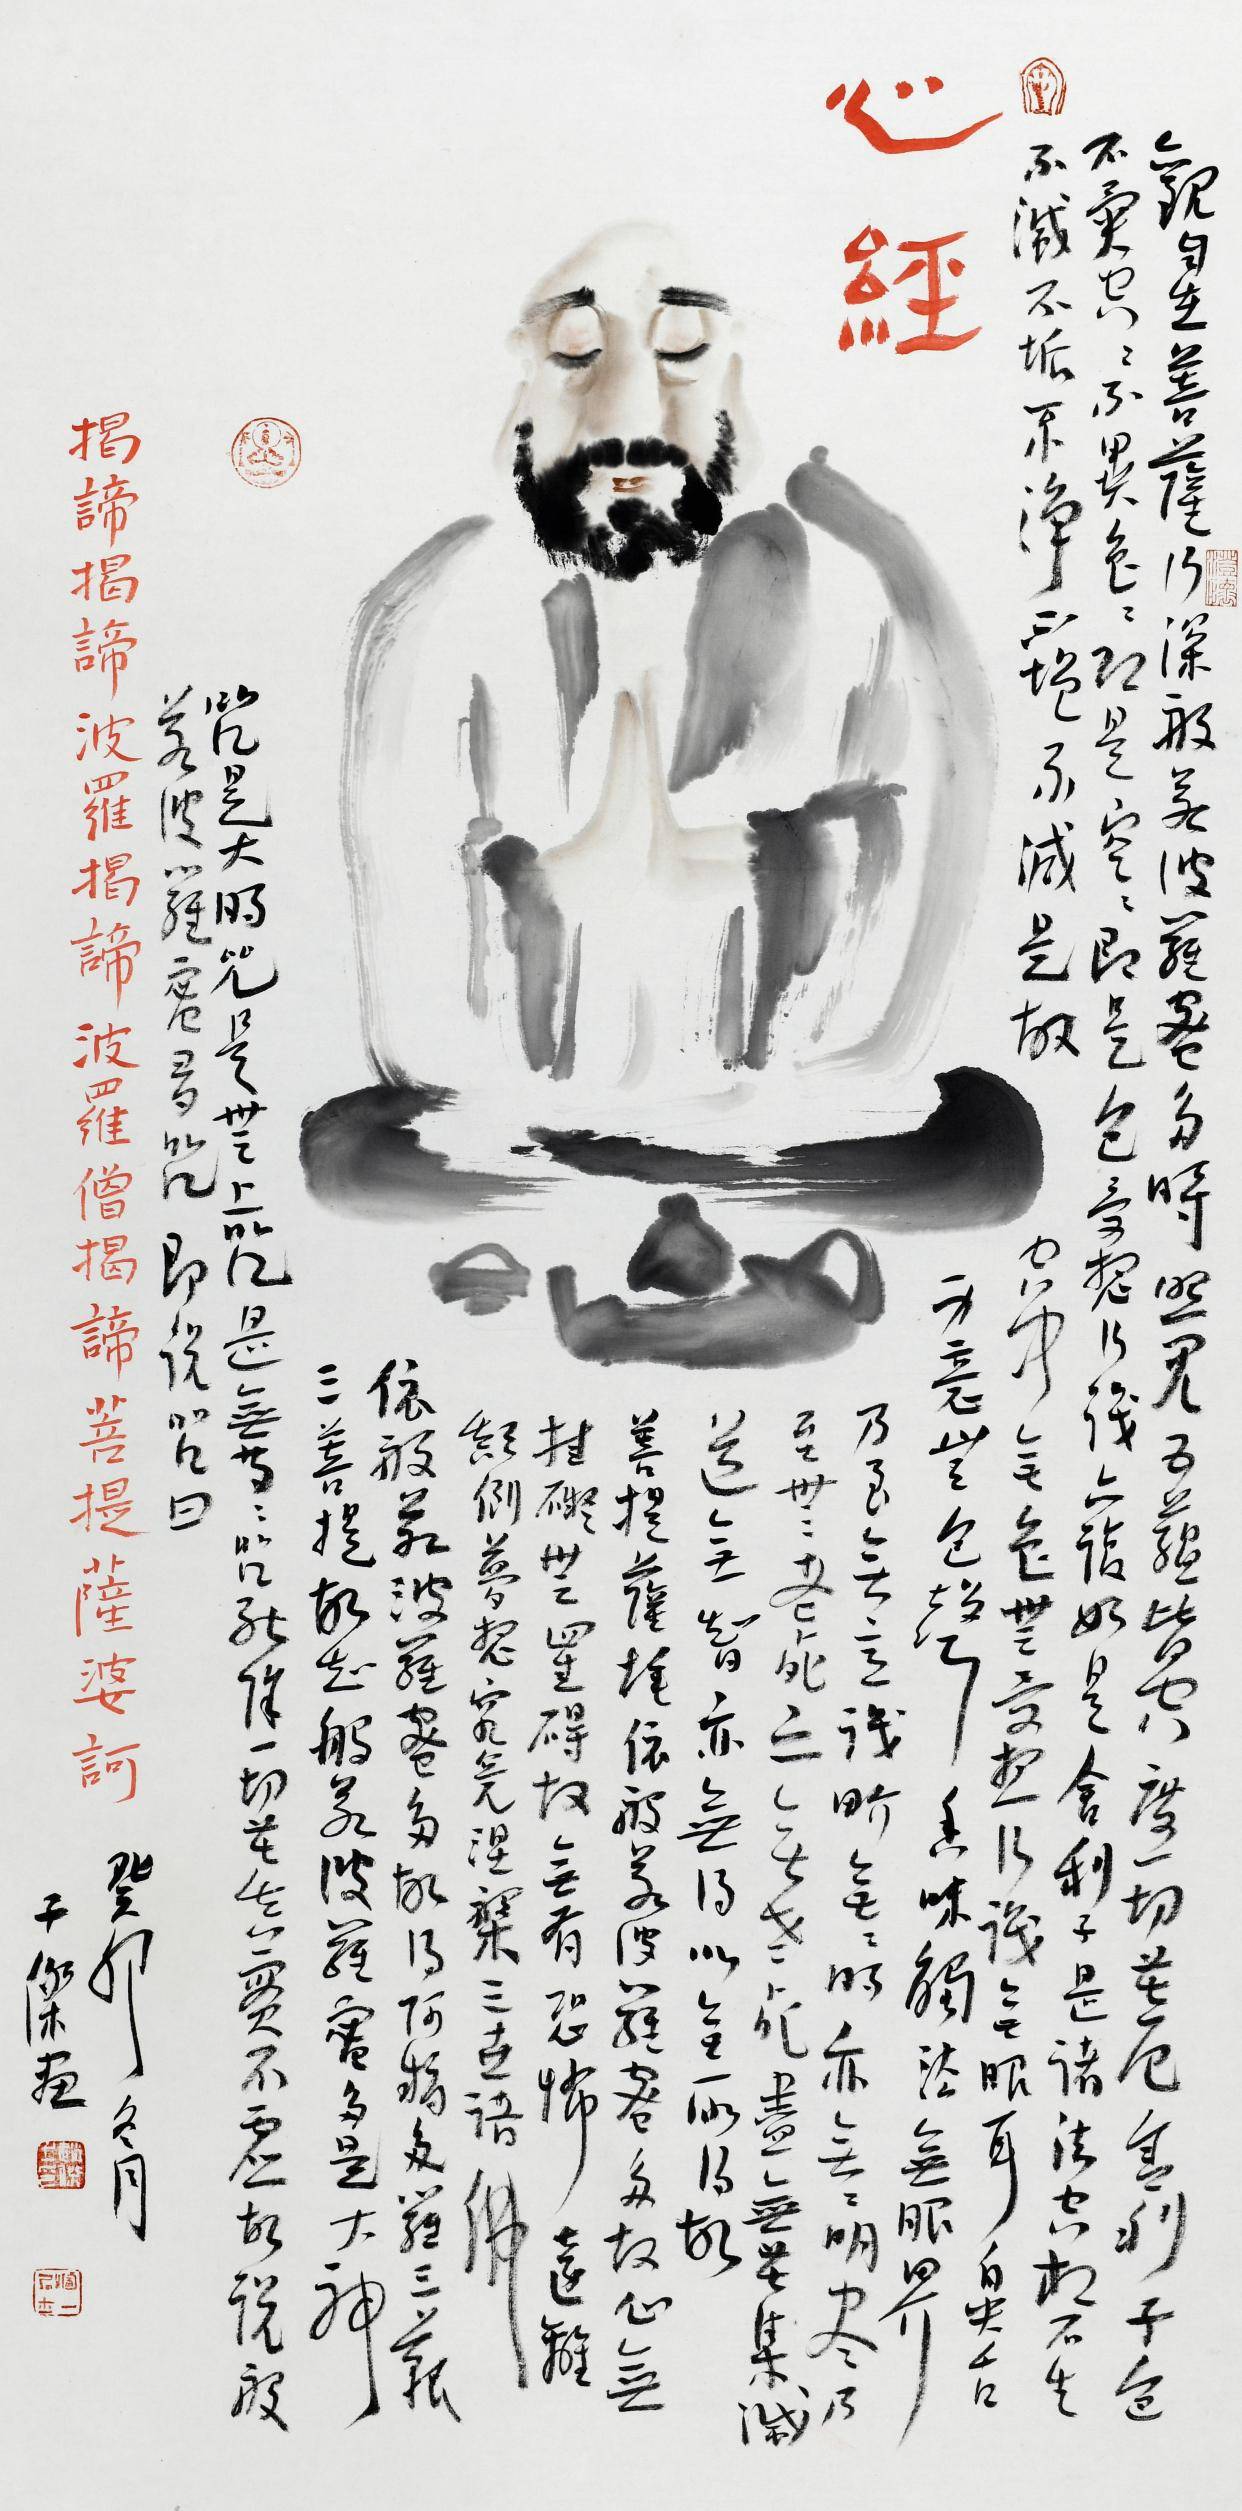 心經
觀自在菩薩行深般若波羅蜜多時照見五蘊皆空度一切苦厄舍利子色
不異空空不異色色即是空空即是色受想行識亦復如是舍利子是諸法空相不生
不滅不垢不淨不增不減是故
空中無色無受想行識無眼耳鼻舌
身意無色聲香味觸法無眼界
乃至無意識界無無明亦無無明盡乃
至無老死亦無老死盡無苦集滅
道無智亦無得以無所得故
菩提薩埵依般若波羅蜜多故心無
挂礙無罣碍故無有恐怖遠離
顛倒夢想究竟涅槃三世諸佛
依般若波羅蜜多故得阿耨多羅三藐
三菩提故知般若波羅蜜多是大神
咒是大明咒是無上咒是無等等咒能除一切苦真實不虛故說般
若波羅蜜多咒即說咒曰
揭諦揭諦波羅揭諦波羅僧揭諦菩提薩婆訶
癸卯冬月
于傑画